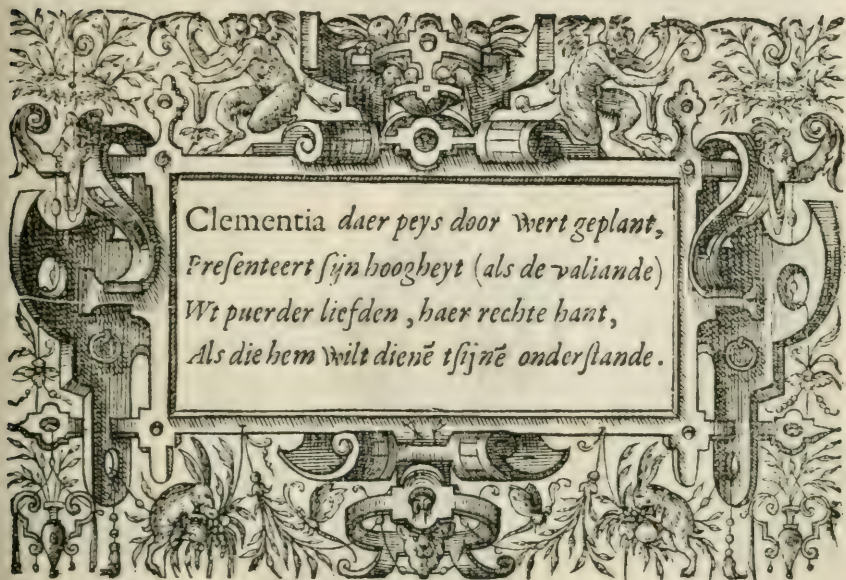 Clementia daer peys door wert geplant,
Preſenteert ſijn hoogheyt (als de valiande)
Wt puerder liefden, haer rechte hant,
Als die hem wilt dienē tſijnē onderſtande.